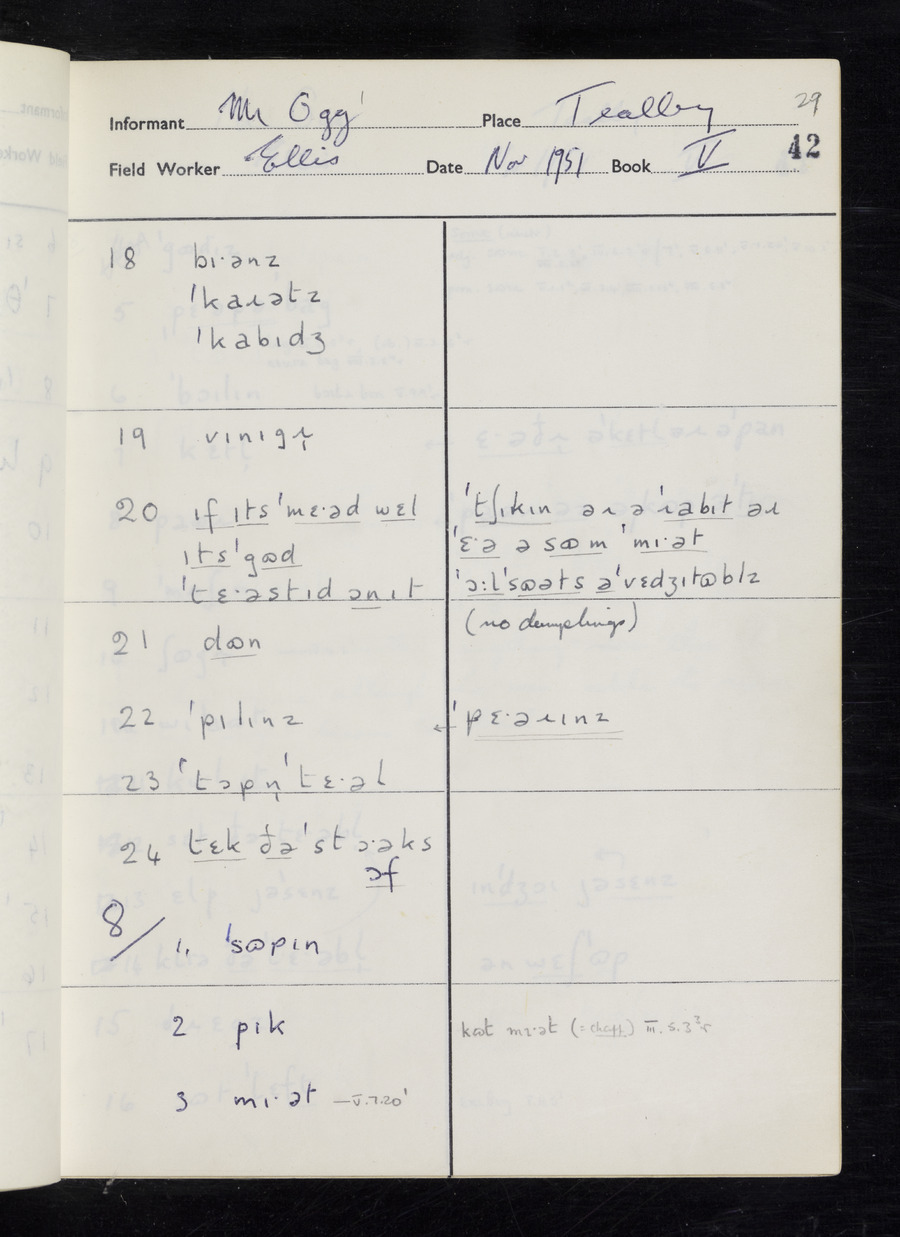 29
Informant Mr Ogg Place Tealby
Field Worker Ellis Date Nov 1951 Book V 42
18 bɪ·ənz
ˈkaɹətz
ˈkabɪdʒ
19 vɪnɪgr̩
20 ɪf ɪts ˈmɛ·əd wɛl
ɪts ˈgɷd
ˈtɛ·əstɪd ənɪt
ˈtʃɪkɪn əɹ ə ˈɹabɪt əɹ
ˈɛ·ə ə sɷm ˈmɪ·ət
ˈɔ:l ˈsɷəts əˈvɛdʒɪtəblz
(no dumplings)
21 dɷn
22 ˈpɪlɪnz
← ˈpɛ·əɹɪnz
23 ˈtɔpn̩ ˈtɛ·əl
24 tɛk ðə ˈstɔ·əks
ɔf
8/ 1. ˈsɷpɪn
2 pɪk
kɷt mɪ·ət (= chaff) III. 5. 3
3 mɪ·ət —V.7.20¹